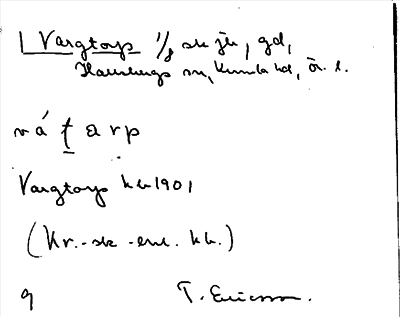 Vargtorp 1/8 sk jb, gd,
Hallsbergs sn, Kumla hd, Ör. l.
vá ṯ a rp
Vargtorp kb 1901
(Kr.-sk-enl. kb.)
9 T. Ericsson.